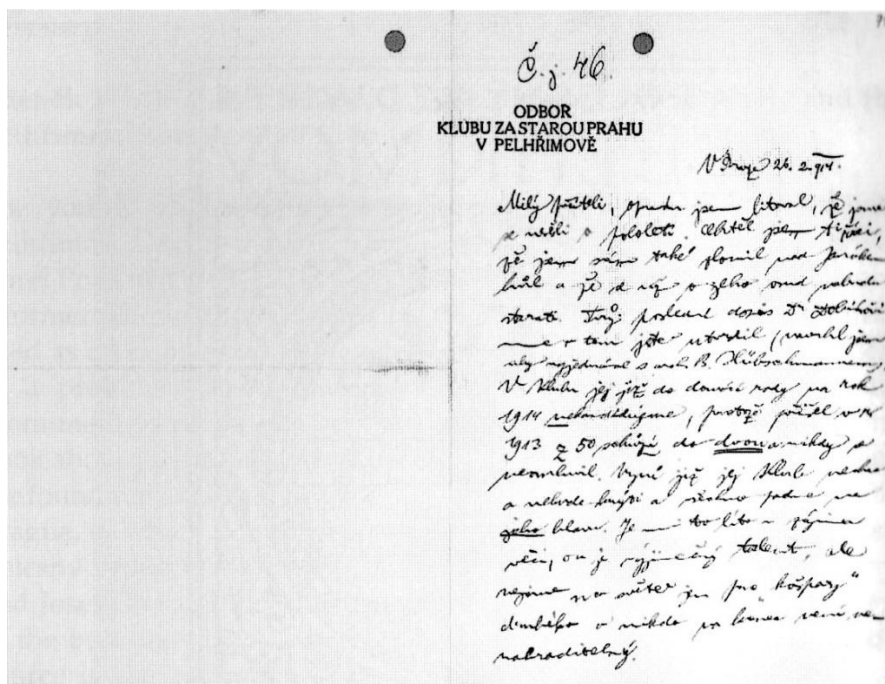 Č. j. 46.
ODBOR
KLUBU ZA STAROU PRAHU
V PELHŘIMOVĚ
V Praze 26. 2. 914.
Milý příteli, opravdu jsem litoval, že jsme
se nešli o pololetí. Chtěl jsem ti říci,
že jsem sám také zlomil nad Janákem
hůl a že se už o jeho osud nebudu
starati. Tvůj poslední dopis Dr
v tom jste utvrdil (navrhl jsem
aby vyjednáno s arch. B. Hübschmannem).
V Klubu jej již do domácí rady na rok
1914 nekandidujeme, protože přišel v r.
1913 z 50 schůzí do dvou a nikdy se
neomluvil. Nyní již jej Klub nechce
a nebude krýti a všechno padne na
jeho hlavu. Je mi to líto v zájmu
věci, on je výjimečný talent, ale
nejsme na světě jen pro "kašpary"
druhého a nikdo na konec není ne-
nahraditelný.